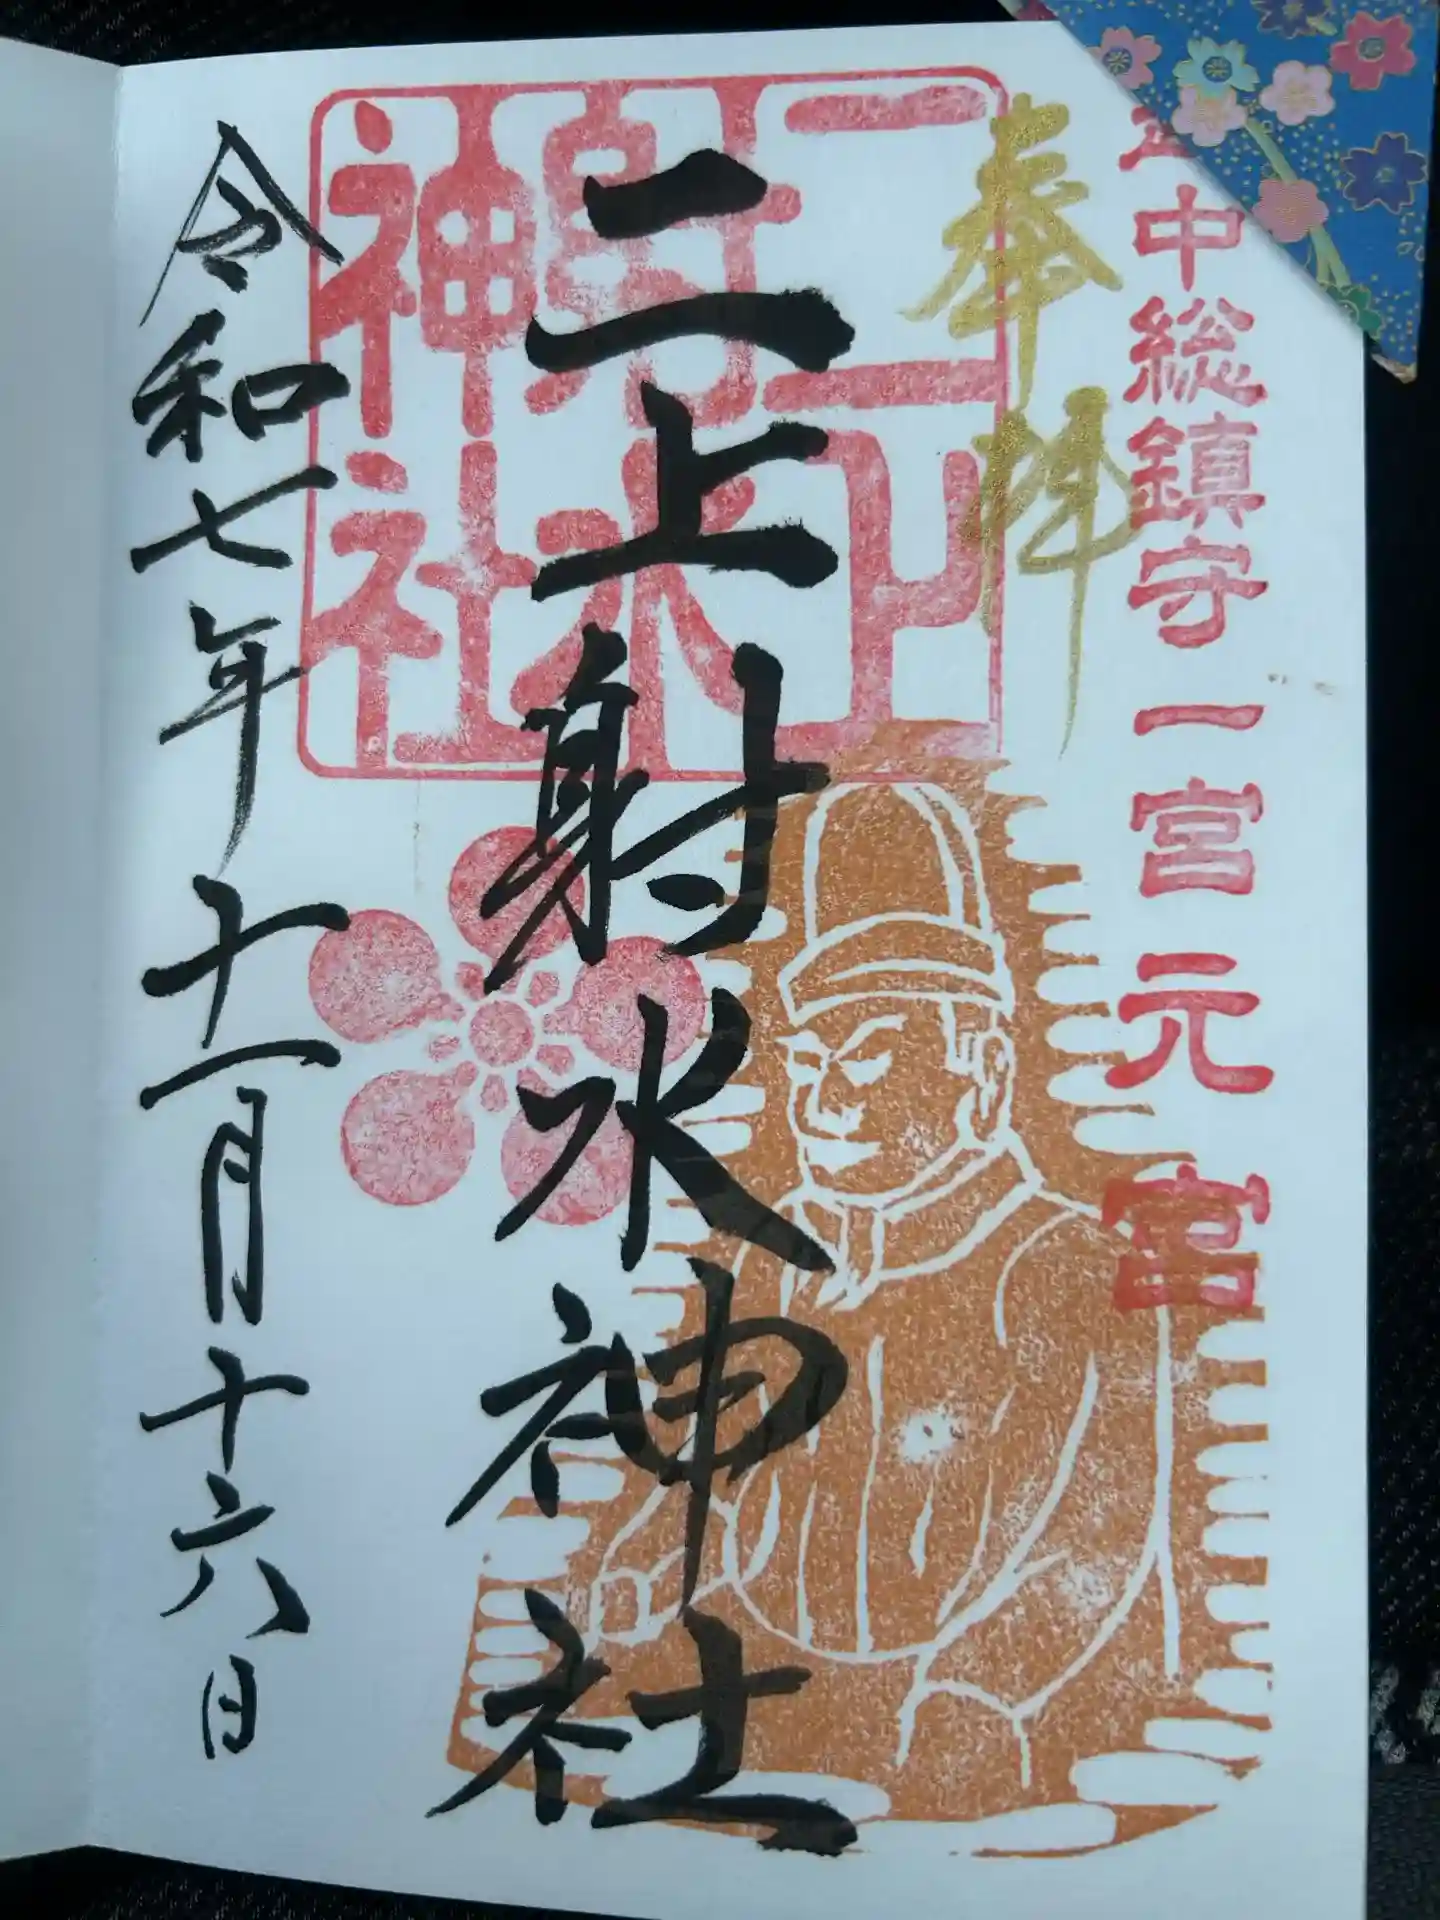 中総鎮守一宮元宮
奉拝
二上射水神社
二上
射水
神社
令和七年十一月十六日